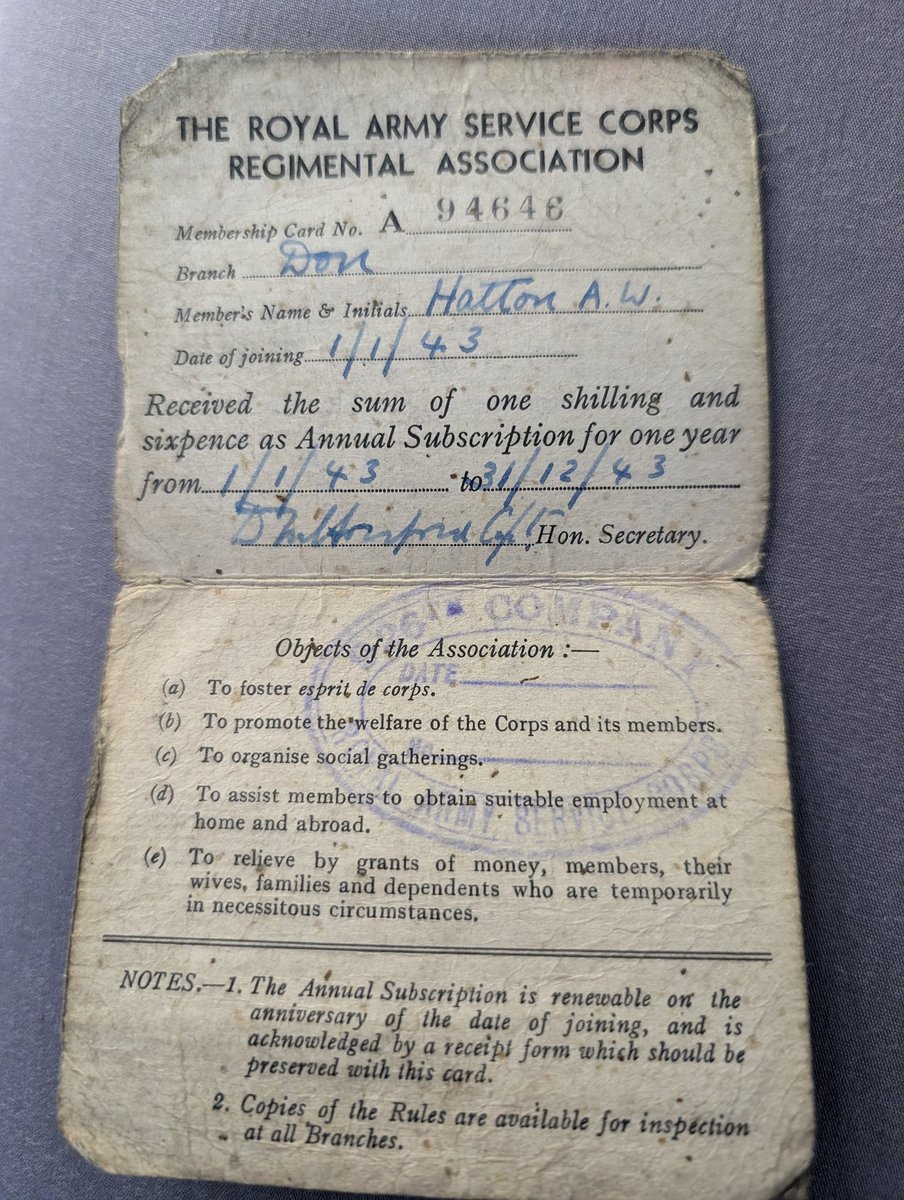 THE ROYAL ARMY SERVICE CORPS
REGIMENTAL ASSOCIATION
Membership Card No. A 94646
Branch Don
Member's Name & Initials Hatton A.W.
Date of joining 1/1/43
Received the sum of one shilling and
sixpence as Annual Subscription for one year
from 1/1/43 to 31/12/43
Hon. Secretary.
COMPANY
Objects of the Association :—
DATE
(a) To foster esprit de corps.
(b) To promote the welfare of the Corps and its members.
(c) To organise social gatherings.
(d) To assist members to obtain suitable employment at
home and abroad.
ROYAL ARMY SERVICE CORPS
(e) To relieve by grants of money, members, their
wives, families and dependents who are temporarily
in necessitous circumstances.
NOTES.—1. The Annual Subscription is renewable on the
anniversary of the date of joining, and is
acknowledged by a receipt form which should be
preserved with this card.
2. Copies of the Rules are available for inspection
at all Branches.